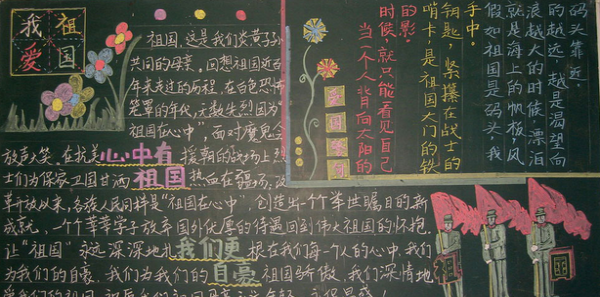 我祖
爱国
祖国,这是我们炎黄子孙
共同的母亲。回想祖国近百
年来走过的历程,在白色恐怖
笼罩的年代,无数先烈因为“
祖国在心中”,面对魔鬼会
放声大笑。在抗美 心中有 援朝的战场上烈
士们为保家卫国甘洒 祖国 热血在疆场。改
革开放以来,各族人民同样是“祖国在心中”,创造出一个个举世瞩目的新
成就,一个个莘莘学子放弃国外优厚的待遇回到伟大祖国的怀抱。
让“祖国”永远深深地扎 我们更 根在我们每个人的心中,我们
为我们的自豪,我们为我们的 自豪 祖国骄傲,我们深情地
码头靠近。
的越远,越是渴望向
浪越大的时候,漂泊
就是海上的帆板,风
假如祖国是码头,我
手中。
钥匙,紧攥在战士的
哨卡是祖国大门的铁
的影。
时候,就只能看见自己
当一个人背向太阳的
爱国警句